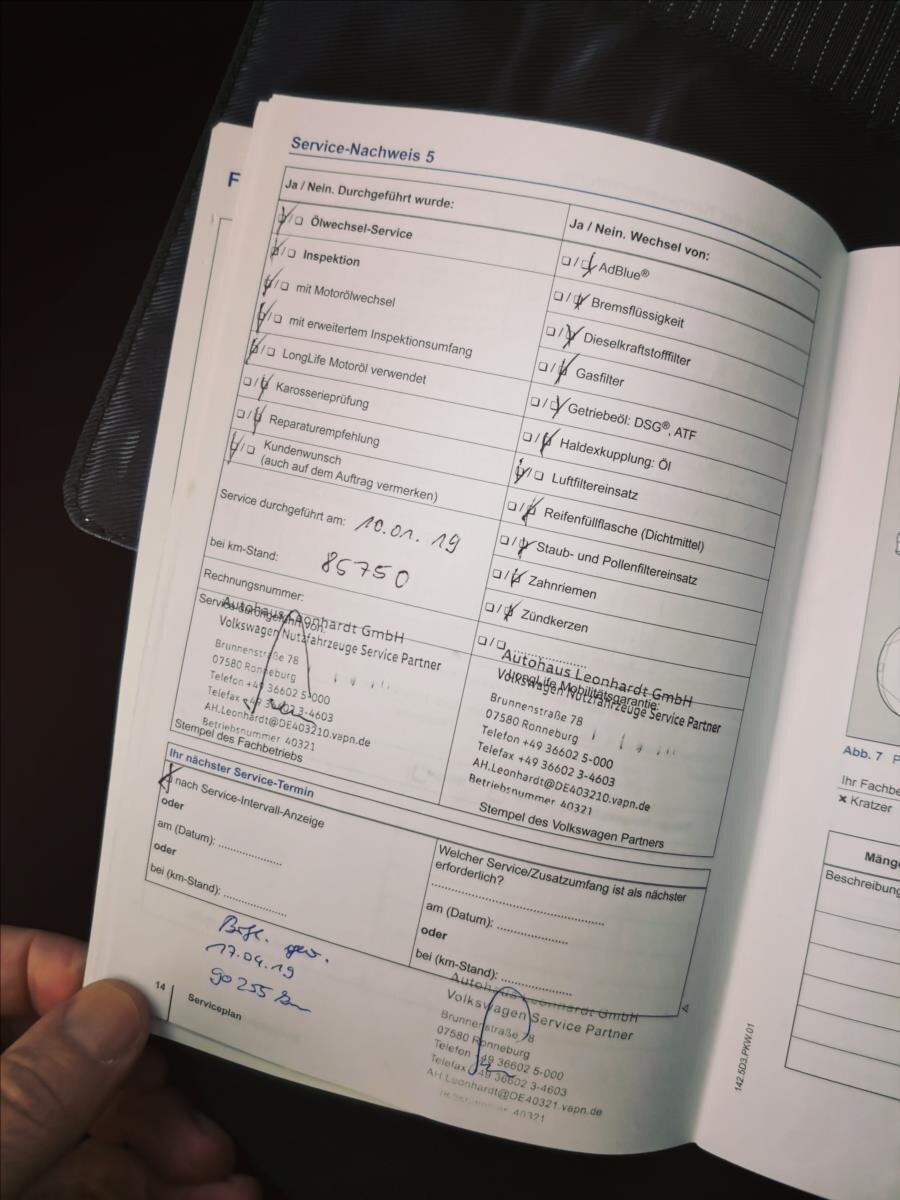 Service-Nachweis 5
F
Ja / Nein. Durchgeführt wurde:
☐/☐ Ölwechsel-Service
☐/☐ Inspektion
☐/☐ mit Motorölwechsel
☐/☐ mit erweitertem Inspektionsumfang
☐/☐ LongLife Motoröl verwendet
☐/☐ Karosserieprüfung
☐/☐ Reparaturempfehlung
☐/☐ Kundenwunsch
(auch auf dem Auftrag vermerken)
Service durchgeführt am: 10.01.19
bei km-Stand: 85750
Rechnungsnummer:
Service durchgeführt von:
Autohaus Leonhardt GmbH
Volkswagen Nutzfahrzeuge Service Partner
Brunnenstraße 78
07580 Ronneburg
Telefon +49 36602 5-000
Telefax +49 36602 3-4603
AH.Leonhardt@DE403210.vapn.de
Betriebsnummer 40321
Stempel des Fachbetriebs
Ja / Nein. Wechsel von:
☐/☐ AdBlue®
☐/☐ Bremsflüssigkeit
☐/☐ Dieselkraftstofffilter
☐/☐ Gasfilter
☐/☐ Getriebeöl: DSG®, ATF
☐/☐ Haldexkupplung: Öl
☐/☐ Luftfiltereinsatz
☐/☐ Reifenfüllflasche (Dichtmittel)
☐/☐ Staub- und Pollenfiltereinsatz
☐/☐ Zahnriemen
☐/☐ Zündkerzen
☐/☐ ....................
LongLife Mobilitätsgarantie:
Autohaus Leonhardt GmbH
Volkswagen Nutzfahrzeuge Service Partner
Brunnenstraße 78
07580 Ronneburg
Telefon +49 36602 5-000
Telefax +49 36602 3-4603
AH.Leonhardt@DE403210.vapn.de
Betriebsnummer 40321
Stempel des Volkswagen Partners
Ihr nächster Service-Termin
☐ nach Service-Intervall-Anzeige
oder
am (Datum): ................
oder
bei (km-Stand): ................
Welcher Service/Zusatzumfang ist als nächster
erforderlich?
am (Datum): ................
oder
bei (km-Stand): ................
17.04.19
90255 km
Autohaus Leonhardt GmbH
Volkswagen Service Partner
Brunnenstraße 78
07580 Ronneburg
Telefon +49 36602 5-000
Telefax +49 36602 3-4603
AH.Leonhardt@DE40321.vapn.de
40321
14
Serviceplan
142.5D3.PKW.01
Abb. 7 P
Ihr Fachbe
× Kratzer
Mänge
Beschreibung